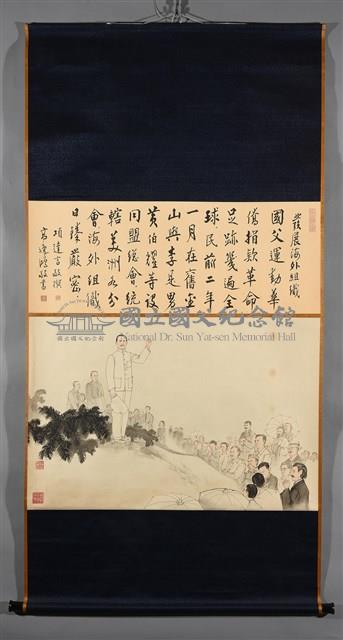 發展海外組織
國父運動華
僑捐款革命
足跡幾遍全
球民前二年
一月在舊金
山與李是男
黃伯耀等設
同盟總會統
轄美洲各分
會海外組織
日臻嚴密
項達言敬撰
國立國父紀念館
National Dr. Sun Yat-sen Memorial Hall